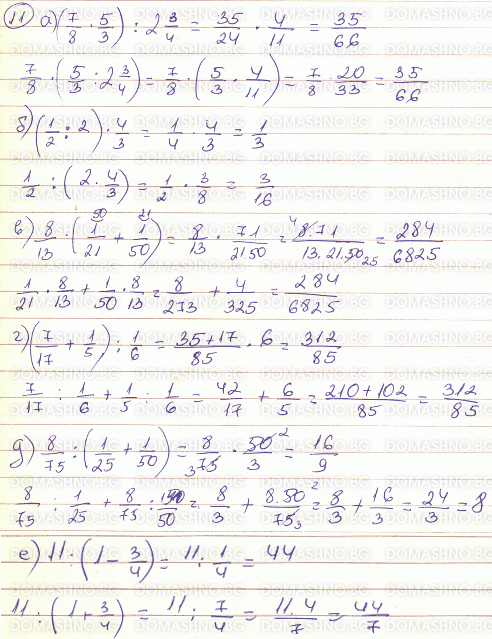 11 а) (7/8 · 5/3) : 2 3/4 = 35/24 · 4/11 = 35/66
7/8 · (5/3 : 2 3/4) = 7/8 · (5/3 · 4/11) = 7/8 · 20/33 = 35/66
б) (1/2 : 2) · 4/3 = 1/4 · 4/3 = 1/3
1/2 : (2 · 4/3) = 1/2 · 3/8 = 3/16
в) 8/13 · (1/21 + 1/50) = 8/13 · 71/21.50 = 8.71/13.21.50 = 284/6825
1/21 · 8/13 + 1/50 · 8/13 = 8/273 + 4/325 = 284/6825
г) (7/17 + 1/5) : 1/6 = 35+17/85 · 6 = 312/85
7/17 : 1/6 + 1/5 : 1/6 = 42/17 + 6/5 = 210+102/85 = 312/85
д) 8/75 : (1/25 + 1/50) = 8/75 · 50/3 = 16/9
8/75 : 1/25 + 8/75 : 1/50 = 8/3 + 8.50/75 = 8/3 + 16/3 = 24/3 = 8
е) 11 : (1 - 3/4) = 11 : 1/4 = 44
11 : (1 + 3/4) = 11 : 7/4 = 11.4/7 = 44/7
DOMASHNO.BG